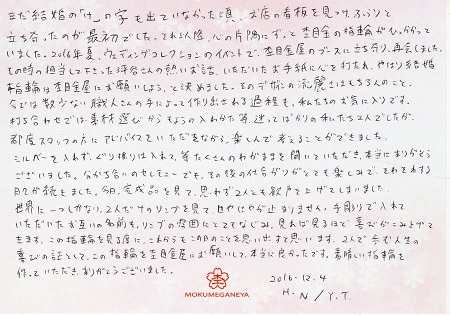 まだ結婚の「け」の字も出ていなかった頃、お店の看板を見つけ、ふらりと
立ち寄ったのが最初でした。それ以降、心の片隅にずっと杢目金の指輪がひっかかって
いました。2016年夏、ウェディングコレクションのイベントで、杢目金屋のブースに立ち寄り、再会しました。
その時の担当して下さった坪谷さんの熱いお話、いただいたお手紙に心を打たれ、やはり結婚
指輪は杢目金屋にお願いしよう、と決めました。そのデザインの流麗さはもちろんのこと、
今では数少ない職人さんの手によって作り出される過程も、私たちのお気に入りです。
打ち合わせでは、素材選びからもようの入れかた等、迷ってばかりの私たち2人でしたが、
都度スタッフの方にアドバイスをいただきながら、楽しんで考えることができました。
シルバーを入れず、ぐり彫りは入れて、等たくさんのわがままを聞いていただき、本当にありがとう
ございました。分かち合いのセレモニーでも、その後の仕上がりがとても楽しみで、そわそわする
日々が続きました。今日、完成品を見て、思わず2人とも歓声を上げてしまいました。
世界に一つしかない、2人だけのリングを見て、にやにやが止まりません。手彫りで入れて
いただいたお互いの名前も、リングの雰囲気にとてもなじみ、見れば見るほど喜びがこみ上げて
きます。この指輪を見る度に、これからもこの日のことを思い出すと思います。2人で歩む人生の
喜びの証として、この指輪を杢目金屋にお願いして、本当に良かったです。素晴しい指輪を
作っていただき、ありがとうございました。
2016-12.4
H.N/Y.T.
MOKUMEGANEYA